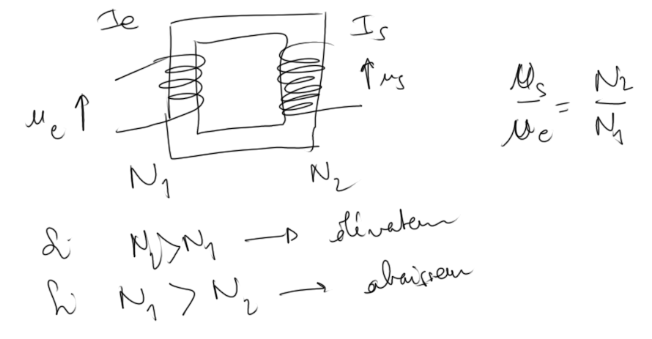 Ie
Is
ue ↑
↑ us
us/ue = N2/N1
N1
N2
Si N2>N1 → élévateur
Si N1 > N2 → abaisseur